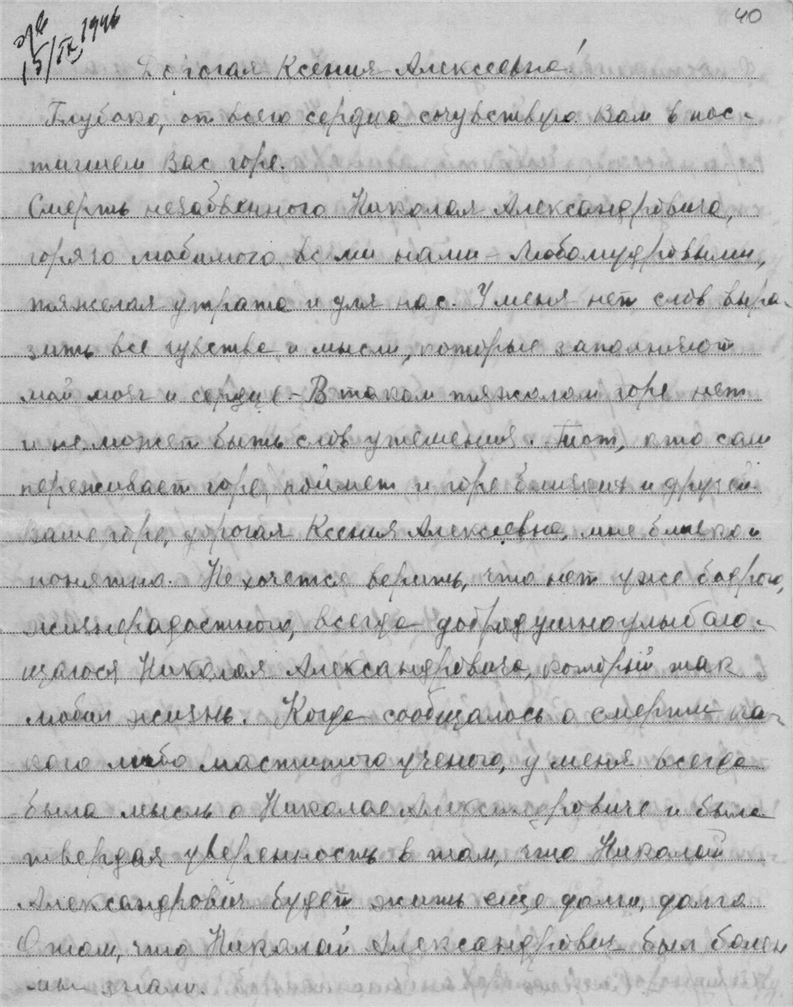 40
15/IX 1946
Дорогая Ксения Алексеевна!
Глубоко, от всего сердца сочувствую Вам в пос-
тигшем Вас горе.
Смерть незабвенного Николая Александровича,
горячо любимого всеми нами – Любомудровыми,
тяжелая утрата и для нас. У меня нет слов выра-
зить все чувства и мысли, которые заполняют
мой мозг и сердце – В таком тяжелом горе нет
и не может быть слов утешения. Тот, кто сам
переживает горе, поймет и горе близких и друзей
Ваше горе, дорогая Ксения Алексеевна, мне близко и
понятно. Не хочется верить, что нет уже бодрого,
жизнерадостного, всегда добродушно улыбаю-
щагося Николая Александровича, который так
любил жизнь. Когда сообщалось о смерти ка-
кого либо маститого ученого, у меня всегда
была мысль о Николае Александровиче и была
твердая уверенность в том, что Николай
Александрович будет жить еще долго, долго
О том, что Николай Александрович был болен
мы знали.